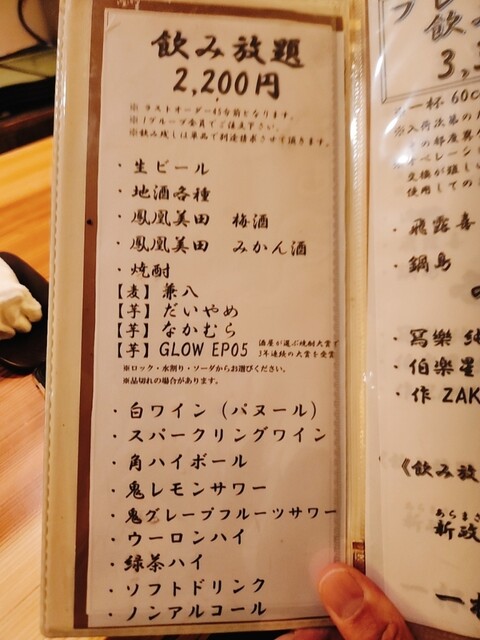 飲み放題
2,200円
※ラストオーダー45分前となります。
※1グループ全員でご注文下さい。
※飲み残しは単品で別途請求させて頂きます。
・生ビール
・地酒各種
・鳳凰美田 梅酒
・鳳凰美田 みかん酒
・焼酎
【麦】兼八
【芋】だいやめ
【芋】なかむら
【芋】GLOW EP05 酒屋が選ぶ焼酎大賞で
3年連続の大賞を受賞
※ロック・水割り・ソーダからお選びください。
※品切れの場合があります。
・白ワイン（パヌール）
・スパークリングワイン
・角ハイボール
・鬼レモンサワー
・鬼グレープフルーツサワー
・ウーロンハイ
・緑茶ハイ
・ソフトドリンク
・ノンアルコール
飲み
3,
一杯 60c
※入荷次第の
の都度異
オペレーシ
交換が難し
使用しての
・飛露喜
・鍋島
・冩樂 純
・伯楽星
・作 ZAK
《飲み放
あらまさ
新政